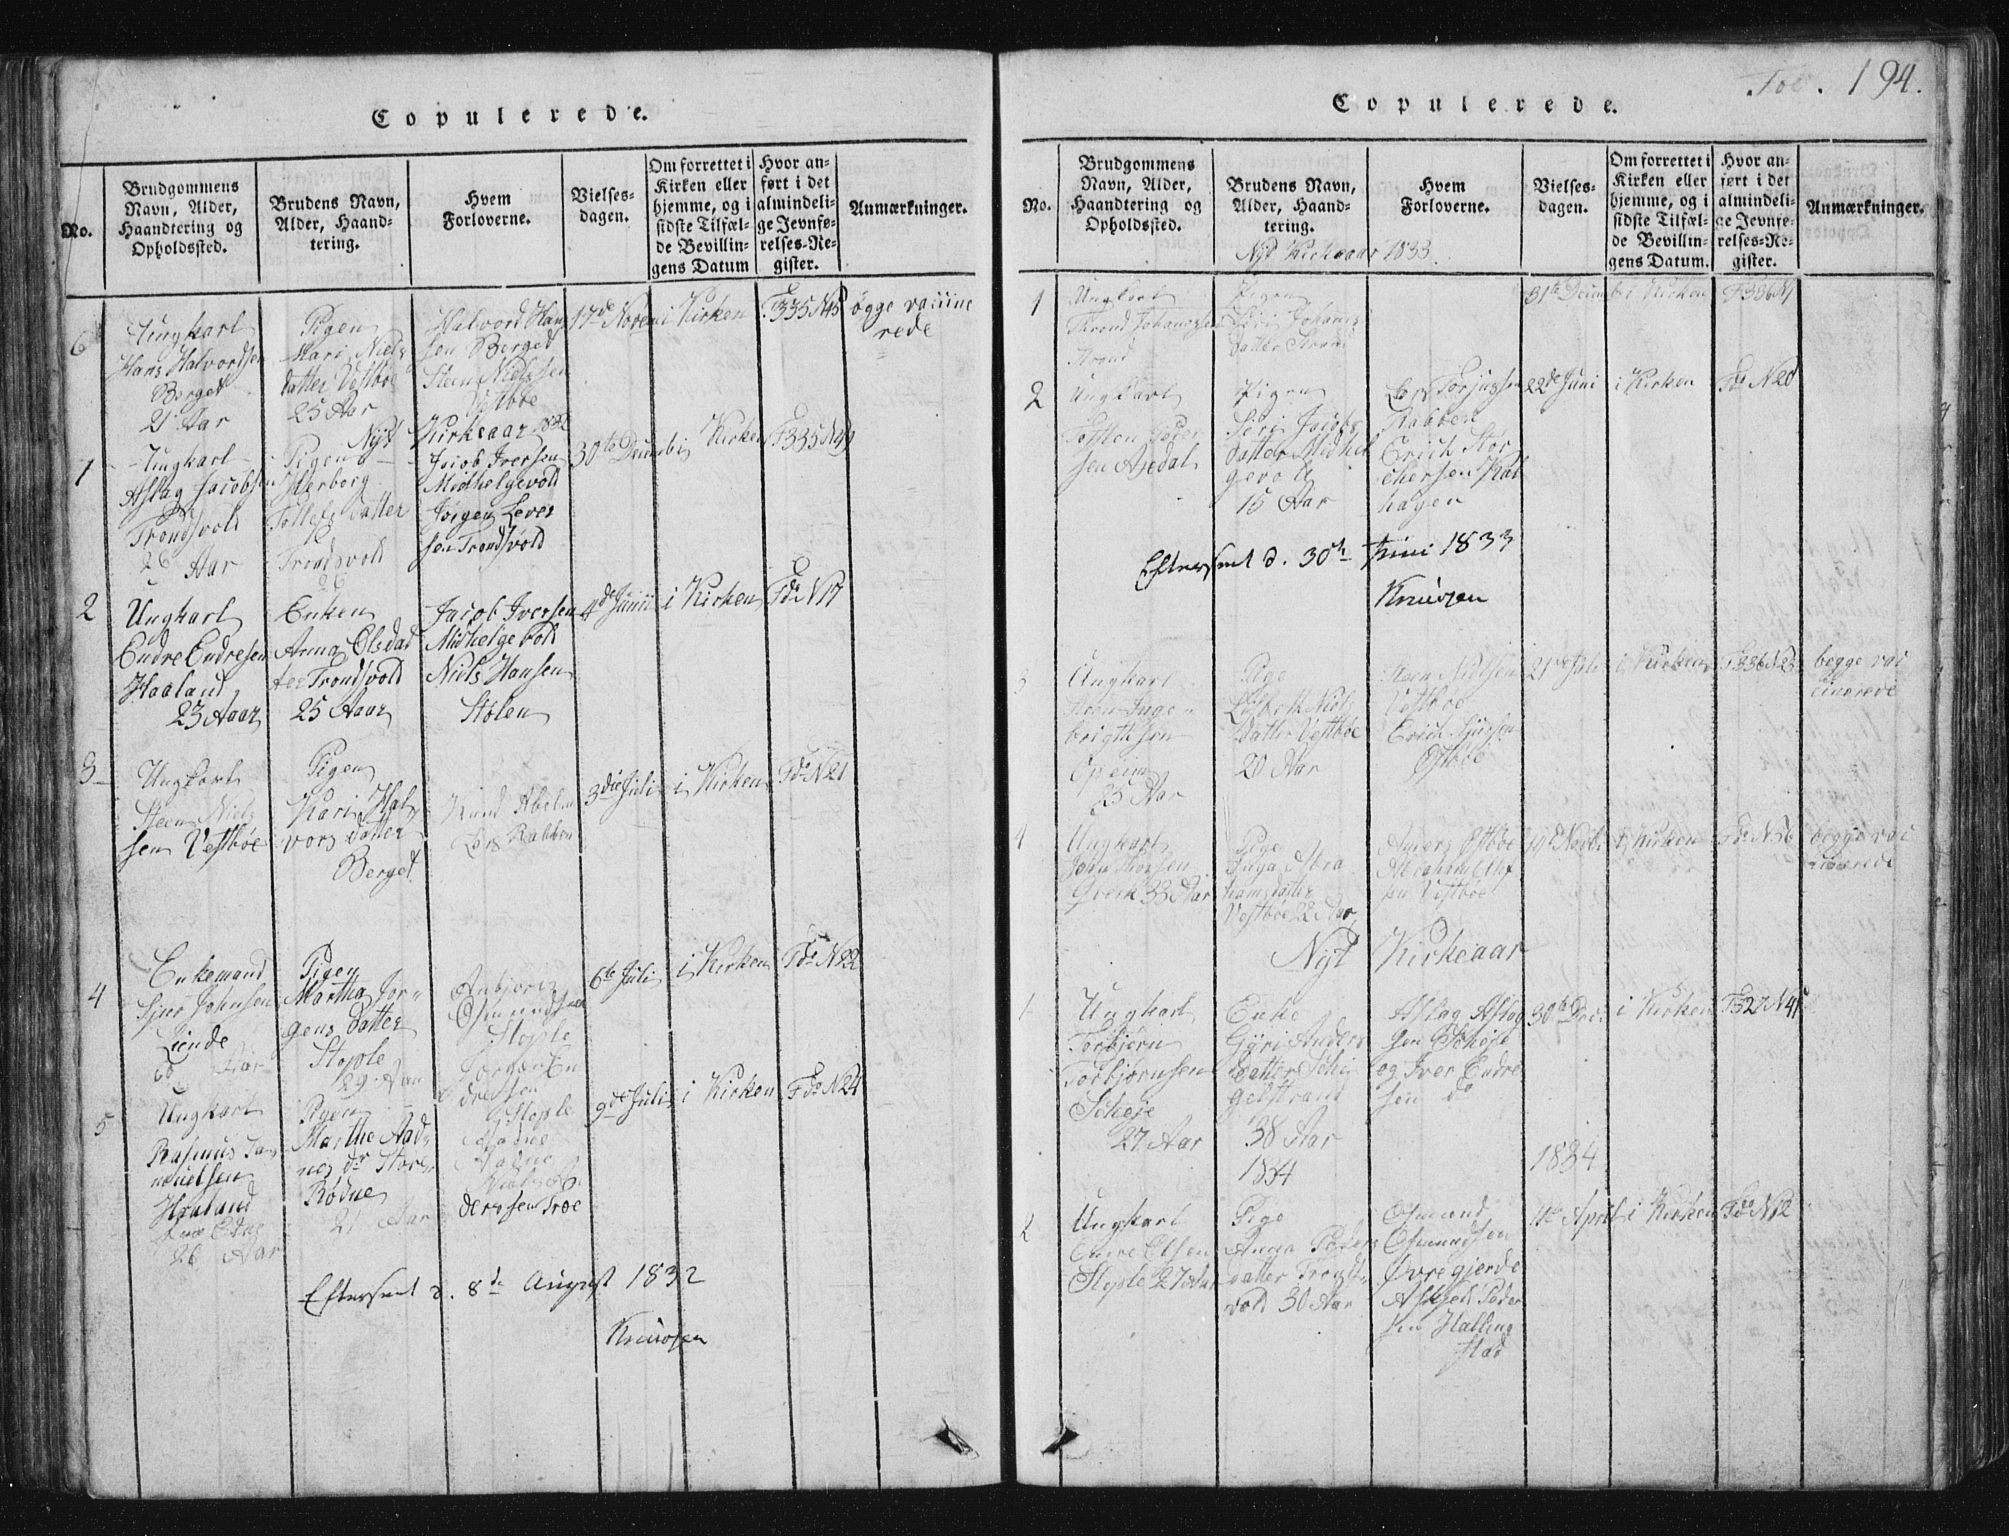 Copulerede.
No.
Brudgommens Navn, Alder, Haandtering og Opholdssted.
Brudens Navn, Alder, Haandtering.
Hvem Forloverne.
Vielsesdagen.
Om forrettet i Kirken eller hjemme, og i sidste Tilfælde Bevillingens Datum
Hvor anført i det almindelige Jevnførelses-Register.
Anmærkninger.
6
Ungkarl
Hans Halvordsen
Berget
21 Aar
Pigen
Mari Niels
datter Vestbøe
25 Aar
Halvord Han
sen Berget
Steen Nielssen
Vestbøe
17de Novem
i Kirken
F335 N45
øgge vaccine
rede
Nyt Kirkeaar 1832
1
Ungkarl
Aslag Jacobsen
Trondsvold
26 Aar
Pigen
Herborg
Tollefs datter
Trondsvold
26
Jacob Iversen
Midhelgevold
Jörgen Lever
sen Trondsvold
30te Decemb
i Kirken
F335 N49
2
Ungkarl
Endre Endresen
Haaland
23 Aaar
Enken
Anna Olsdat
ter Trondsvold
25 Aaar
Jacob Iversen
Midhelgevold
Niels Hansen
Stolen
4de Junii
i Kirken
Fdo N17
3
Ungkarl
Steen Niels
sen Vestbøe
Pigen
Kari Hal
vors datter
Berget
Knud Abelm
Lars Rabben
3die Juli
i Kirken
Fdo N21
4
Enkemand
Sjur Johnsen
Liende
60 Aar
Pigen
Martha Jør
gens datter
Stople
29 Aar
Anbjørn
Osmundsen
Stople
Jørgen En
dresen
Stople
6te Juli
i Kirken
Fdo N22
5
Ungkarl
Rasmus Sa
muelsen
Haaland
26 Aar
Pigen
Marthe Aad
nes dr Store
Rødne
21 Aar
Aadne
Aadne
dersen Troe
9de Juli
i Kirken
Fdo N24
Efterseet d. 8de August 1832
Knudsen
Fol. 194.
Copulerede.
No.
Brudgommens Navn, Alder, Haandtering og Opholdssted.
Brudens Navn, Alder, Haandtering.
Hvem Forloverne.
Vielsesdagen.
Om forrettet i Kirken eller hjemme, og i sidste Tilfælde Bevillingens Datum.
Hvor anført i det almindelige Jevnførelses-Register.
Anmærkninger.
Nyt Kirkeaar 1833.
1
Ungkarl
Thrond Johannssen
Strand
Pigen
Siri Johans
datter Strand
31te Decemb
i Kirken
F336 N1
2
Ungkarl
Tosten Peder
sen Axdal
Pigen
Siri Jacobs
datter Midhel
gevold
15 Aar
Lars Torjussen
Rabben
Erich Stor
chersen Kal
hagen
22de Juni
i Kirken
Fdo N20
Efterseet d. 30te Juni 1833
Knudsen
3
Ungkarl
Steen Inge
brigthsen
Opeim
25 Aar
Pige
Lisbeth Niels
datter Vestbøe
20 Aar
Steen Nielsen
Vestbøe
Erich Sjursen
Østbøe
21de Juli
i Kirken
F336 N23
begge vac
cinerede
4
Ungkarl
John Thorsen
33 Aar
Pige
Inga Abra
hamsdatter
Vestbøe 22 Aar
Anders Østbøe
Abraham
sen Vestbøe
19d Novbr
i Kirken
Fdo N36
begge vac
cinerede
Nyt Kirkeaar
1
Ungkarl
Torbjørn
Torbjørnsen
Scheje
27 Aar
Enke
Gyri Anders
datter Schi
gelstrand
38 Aar
Aslag Aslag
sen Scheje
og Iver Endre
sen do
30te Dec.
i Kirken
F327 N41
1834
1834
2
Ungkarl
Endre Olsen
Stople 27 Aar
Pige
Anna Peders
datter Tronds
vold 30 Aar
Osmund
Osmundsen
Øvregjerde
Askjeld Peder
sen Halling
stad
11te April
i Kirken
Fdo N12